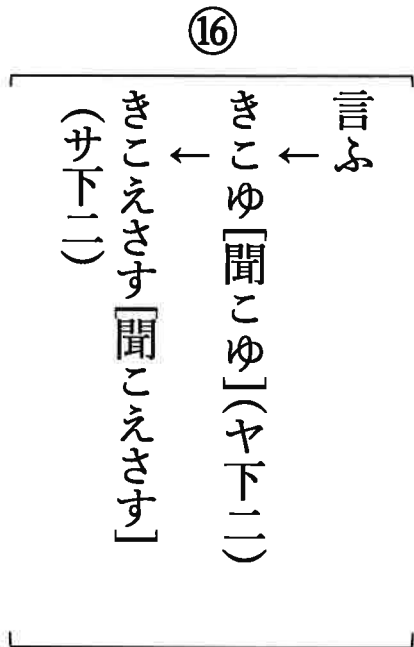 ⑯
言ふ
←
きこゆ[聞こゆ](ヤ下二)
←
きこえさす[聞こえさす]
(サ下二)